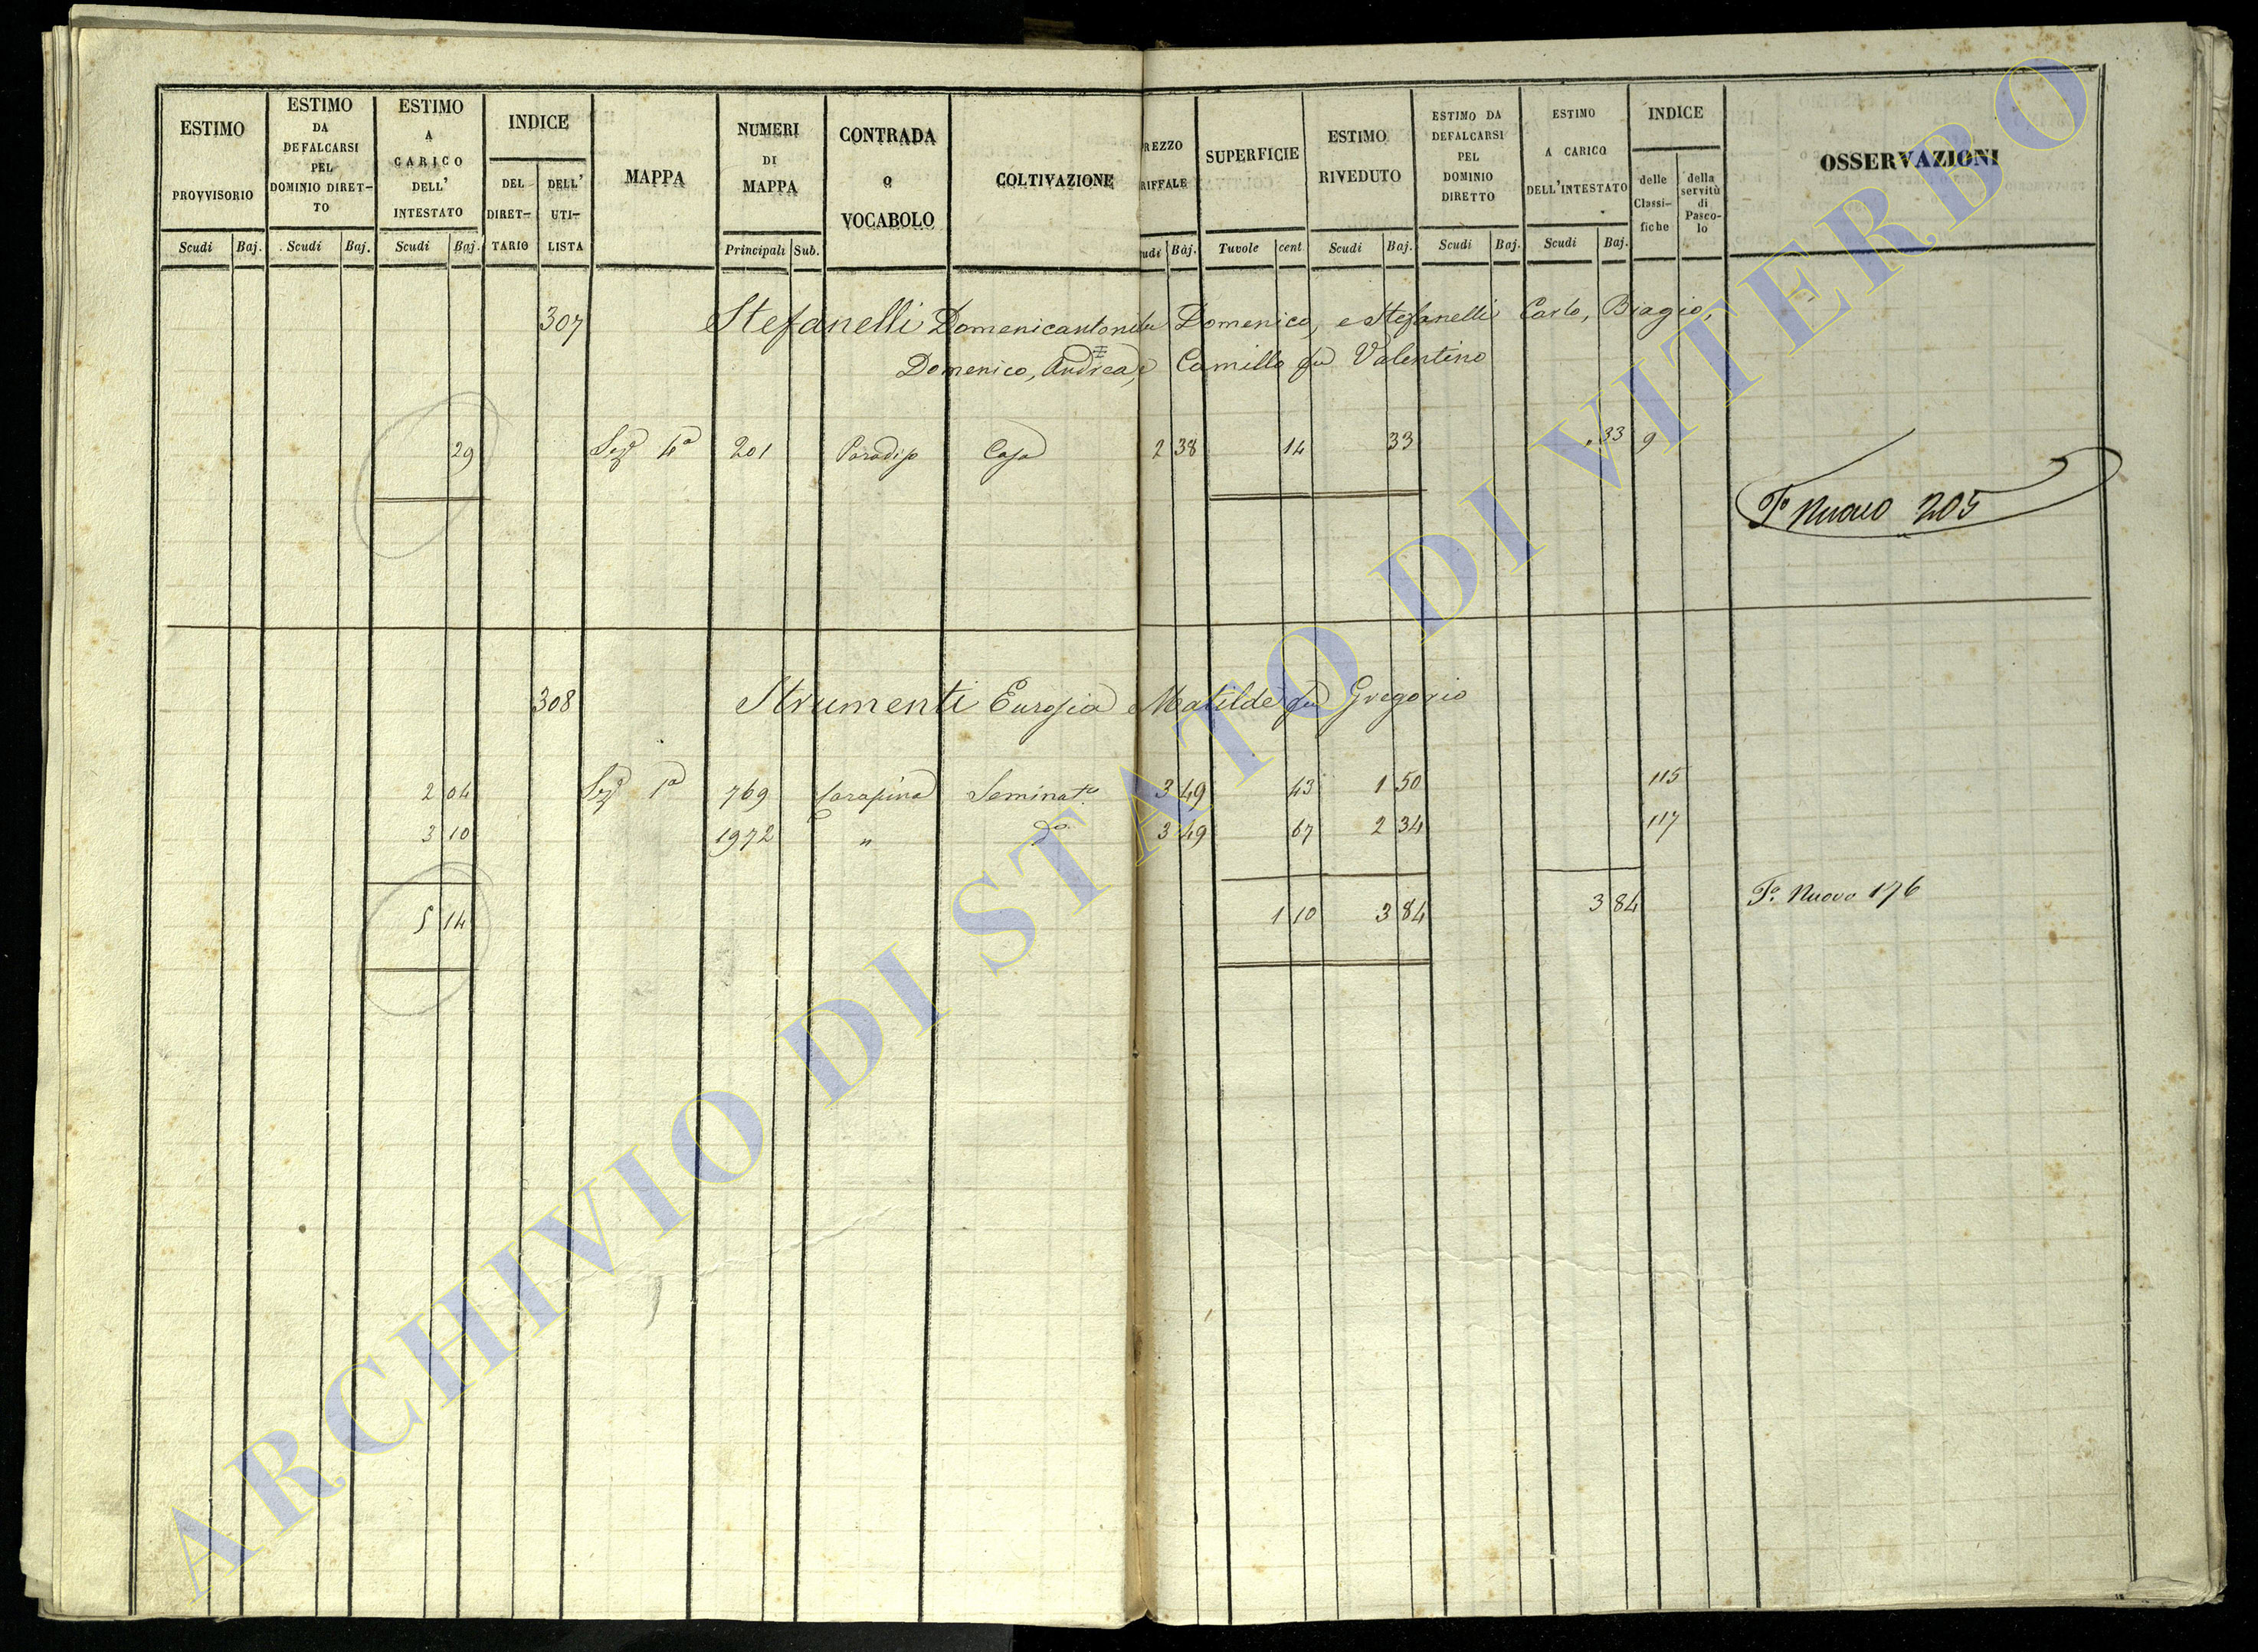 ESTIMO PROVVISORIO Scudi Baj.
ESTIMO DA DEFALCARSI PEL DOMINIO DIRET- TO Scudi Baj.
ESTIMO A CARICO DELL' INTESTATO Scudi Baj.
INDICE DEL DIRET- TARIO DELL' UTI- LISTA
MAPPA
NUMERI DI MAPPA Principali Sub.
CONTRADA O VOCABOLO
COLTIVAZIONE
REZZO RIFFALE udi Baj.
SUPERFICIE Tavole cent
ESTIMO RIVEDUTO Scudi Baj.
ESTIMO DA DEFALCARSI PEL DOMINIO DIRETTO Scudi Baj.
ESTIMO A CARICO DELL'INTESTATO Scudi Baj.
INDICE delle Classi- fiche della servitù di Pasco- lo
OSSERVAZIONI
307 Stefanelli Domenicantonio fu Domenico, e Stefanelli Carlo, Biagio,
Domenico, Andrea, e Camillo fu Valentino
29 Sezᵉ 4ª 201 Paradiso Casa 2 38 14 33 33 9
Tº Nuovo 205
308 Strumenti Eurosia e Matilde fu Gregorio
2 04 Sezᵉ 1ª 769 Sarapina Seminatº 3 49 43 1 50 115
3 10 1972 " dº 3 49 67 2 34 117
5 14 1 10 3 84 3 84 Tº Nuovo 176
ARCHIVIO DI STATO DI VITERBO